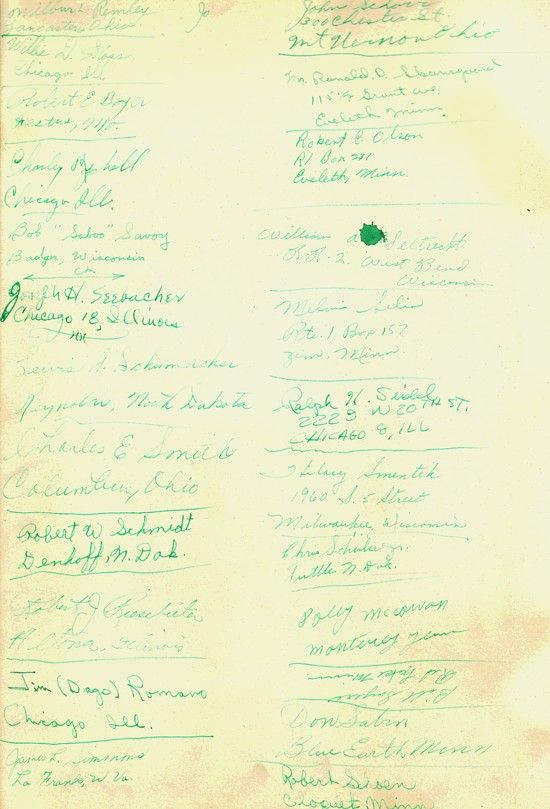 Wilbur L Remley
Lancaster Ohio
Jo
Willie D. Glass
Chicago Ill.
Robert E Boyer
Festus, Mo.
Charley
Chicago Ill.
Bob "Saboo" Savoy
Badger, Wisconsin
Joseph H. Seebacher
Chicago 18, Illinois
Lewis A. Schumacher
Reynolds, North Dakota
Charles E Smith
Columbus, Ohio
Robert W Schmidt
Denhoff, N. Dak.
Robert J
Altona, Illinois
Jim (Dago) Romano
Chicago Ill.
James L. Simmons
La Frank, W. Va.
John
800 Chester St.
Mt Vernon Ohio
Ronald D.
Grant Ave.
Eveleth Minn.
Robert E. Olson
R1 Box 211
Eveleth, Minn.
William a
R.R. 2. West Bend
Wisconsin
Melvin
Rte. 1 Box 157
Zim, Minn.
Ralph H. Seidel
2229 N 20TH ST.
CHICAGO 8, ILL
Hilary Smentek
1960 S. 5 Street
Milwaukee, Wisconsin
Chris Jr.
Tuttle N. Dak.
Polly McCowan
Monterey Tenn
Bill
Red Lake Minn
Don Sabin
Blue Earth Minn
Robert
Cloquet, Minn